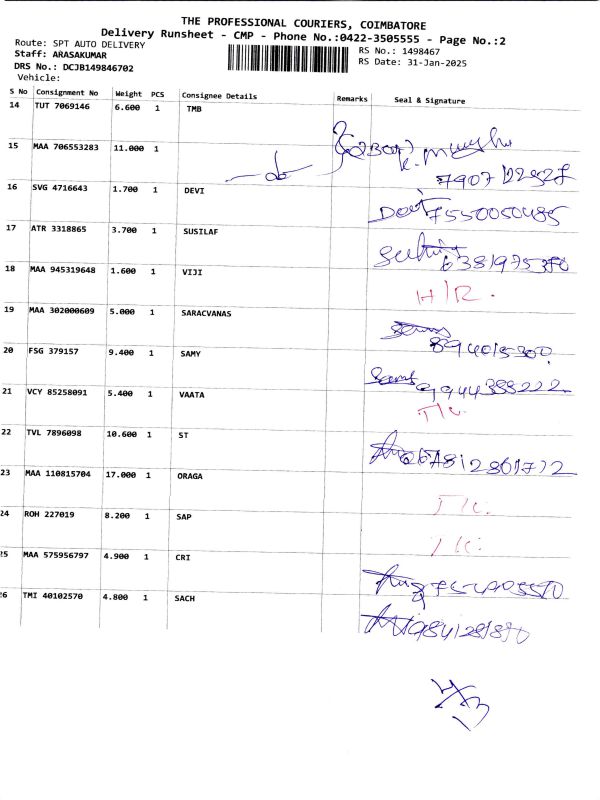 THE PROFESSIONAL COURIERS, COIMBATORE
Delivery Runsheet - CMP - Phone No.:0422-3505555 - Page No.:2
Route: SPT AUTO DELIVERY
RS No.: 1498467
Staff: ARASAKUMAR
RS Date: 31-Jan-2025
DRS No.: DCJB149846702
Vehicle:
S No Consignment No Weight PCS Consignee Details Remarks Seal & Signature
14 TUT 7069146 6.600 1 TMB
15 MAA 706553283 11.000 1
16 SVG 4716643 1.700 1 DEVI
Devi 7550050485
17 ATR 3318865 3.700 1 SUSILAF
6381975370
18 MAA 945319648 1.600 1 VIJI
H/R.
19 MAA 302000609 5.000 1 SARACVANAS
894015300
20 FSG 379157 9.400 1 SAMY
9944388222
21 VCY 85258091 5.400 1 VAATA
T/C.
22 TVL 7896098 10.600 1 ST
23 MAA 110815704 17.000 1 ORAGA
T/C.
24 ROH 227019 8.200 1 SAP
T/C.
25 MAA 575956797 4.900 1 CRI
26 TMI 40102570 4.800 1 SACH